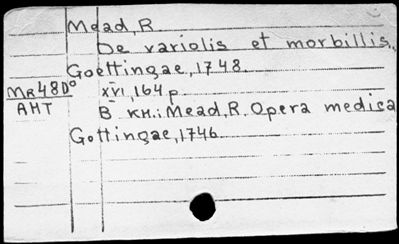 Mead, R
De variolis et morbillis.
Goettingae, 1748.
MR48D°
XVI, 164 p.
АНТ
В кн.: Mead, R. Opera medica
Gottingae, 1746